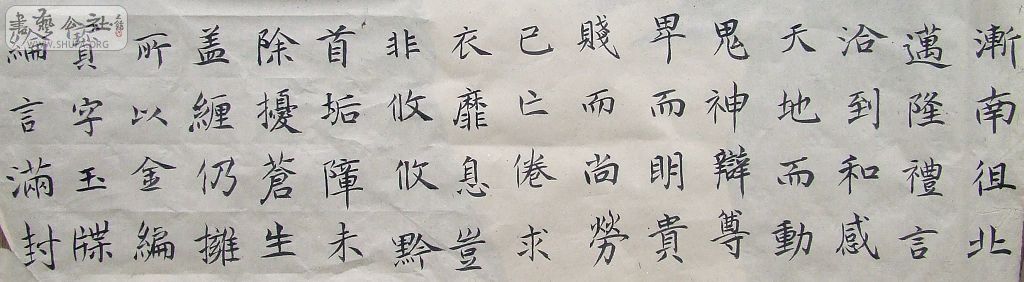 漸南徂北
邁隆禮言
洽到和感
天地而動
鬼神辯尊
卑而明貴
賤而尚勞
已亡倦求
衣靡息豈
非攸攸黔
首垢障未
除擾蒼生
盖纏仍擁
所以金編
寶字玉牒
綸言滿封
WWW.SHUFA.ORG